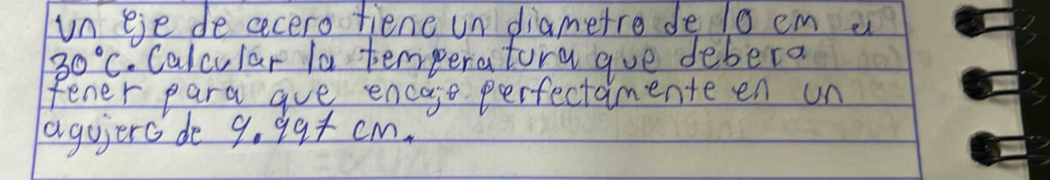 Un eje de acero tiene un diametro de 10 cm a
30°C. Calcular la temperatura que debera
tener para que encaje perfectamente en un
agujero de 9.997 cm.